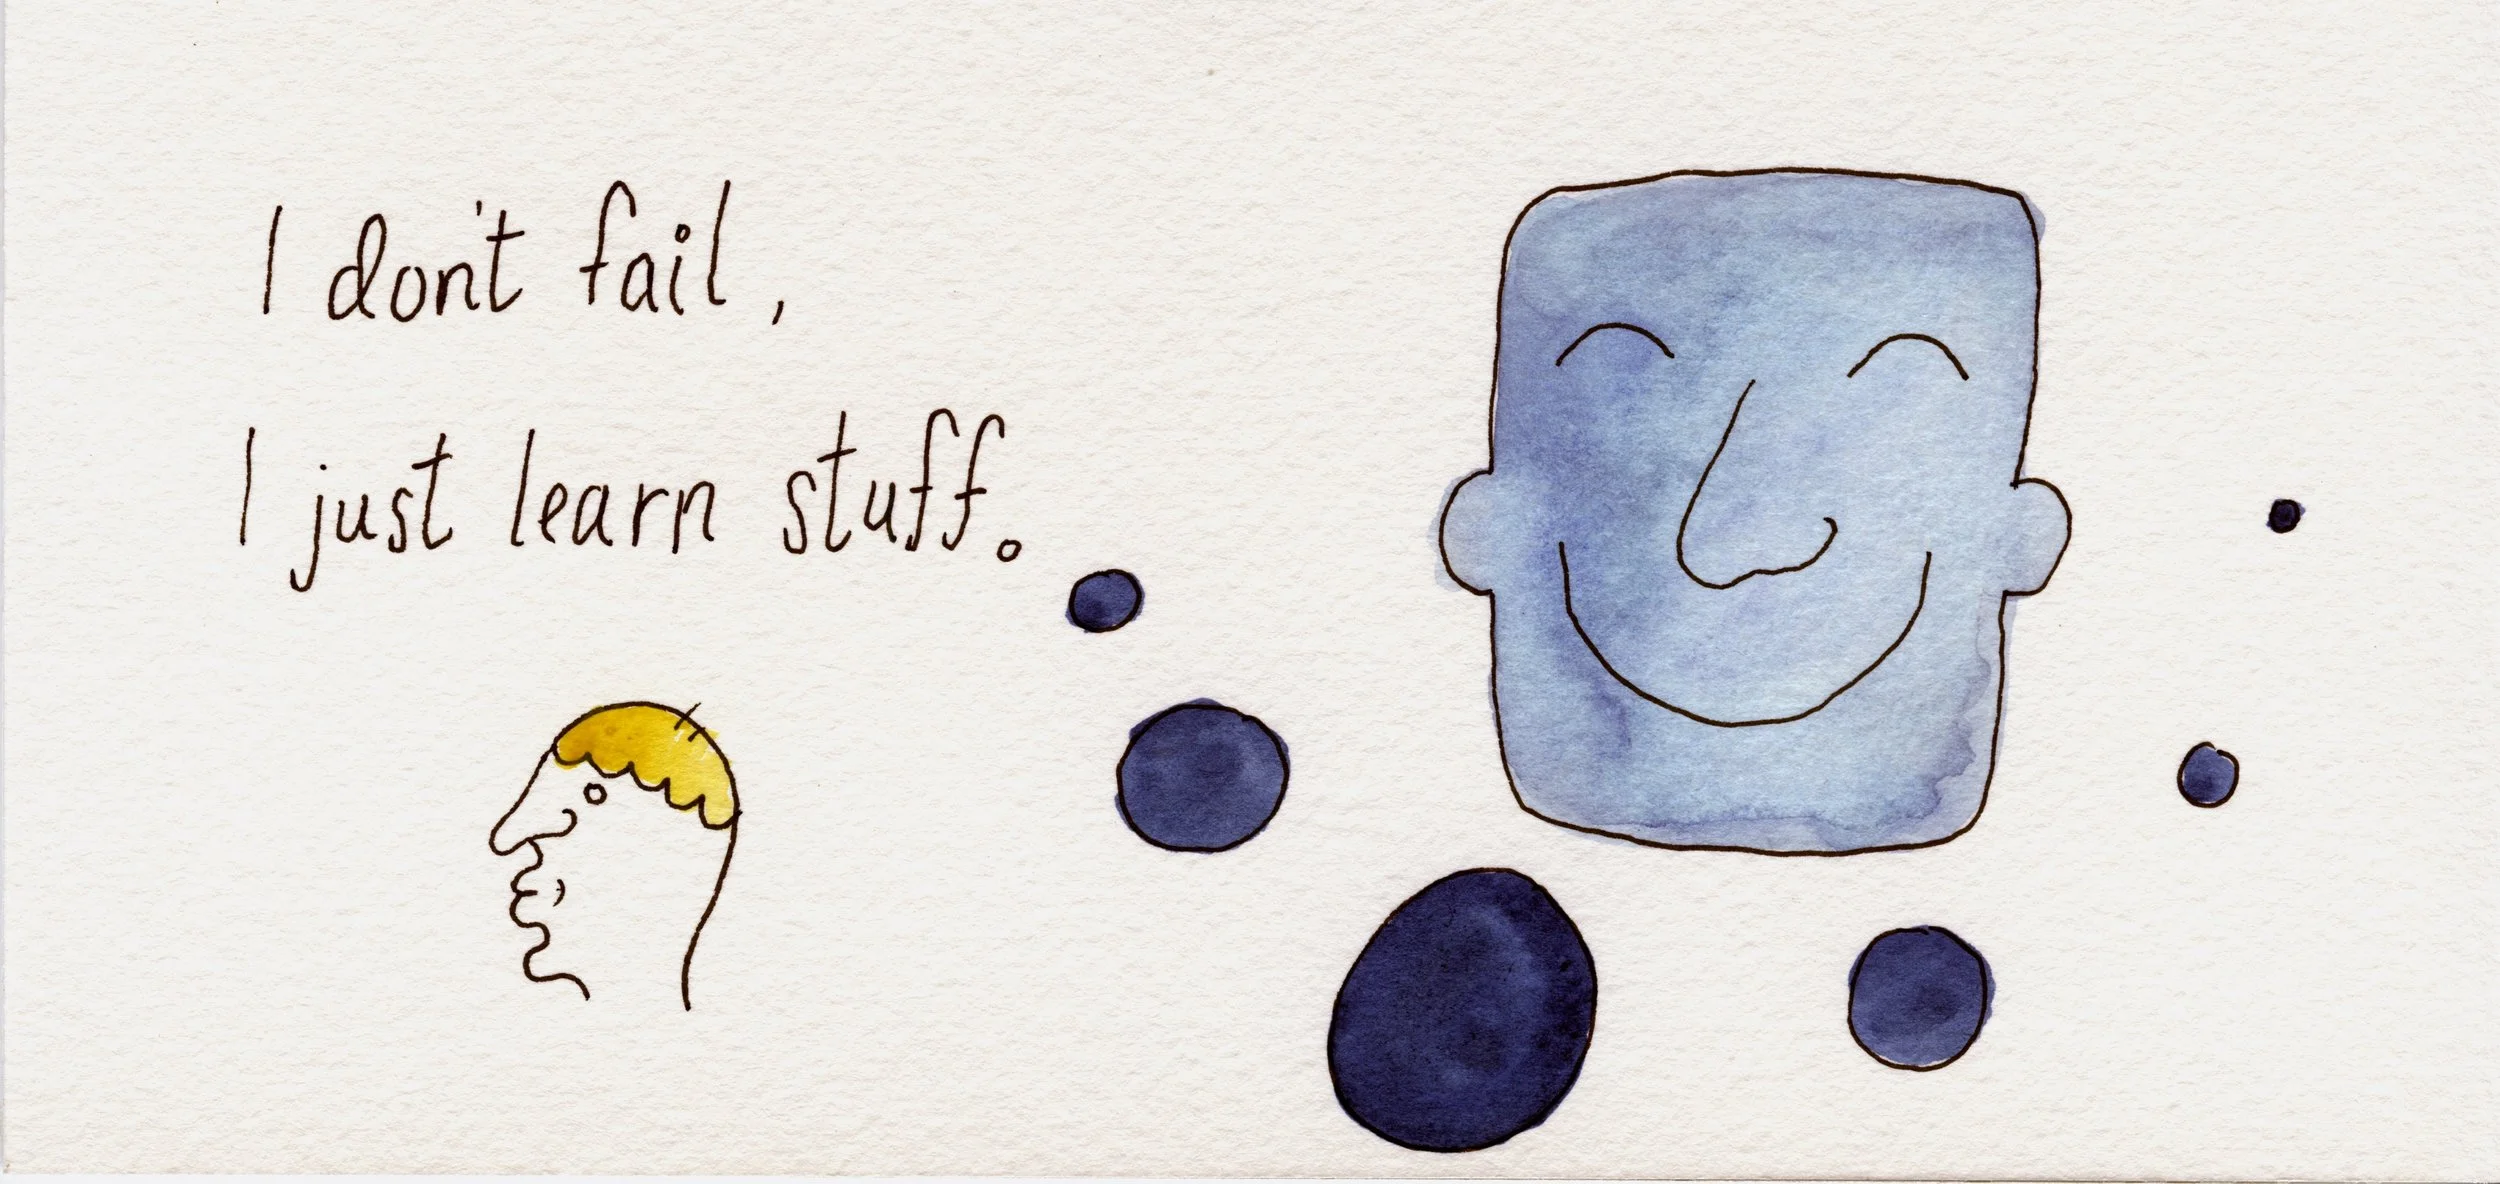 I don't fail,
I just learn stuff.